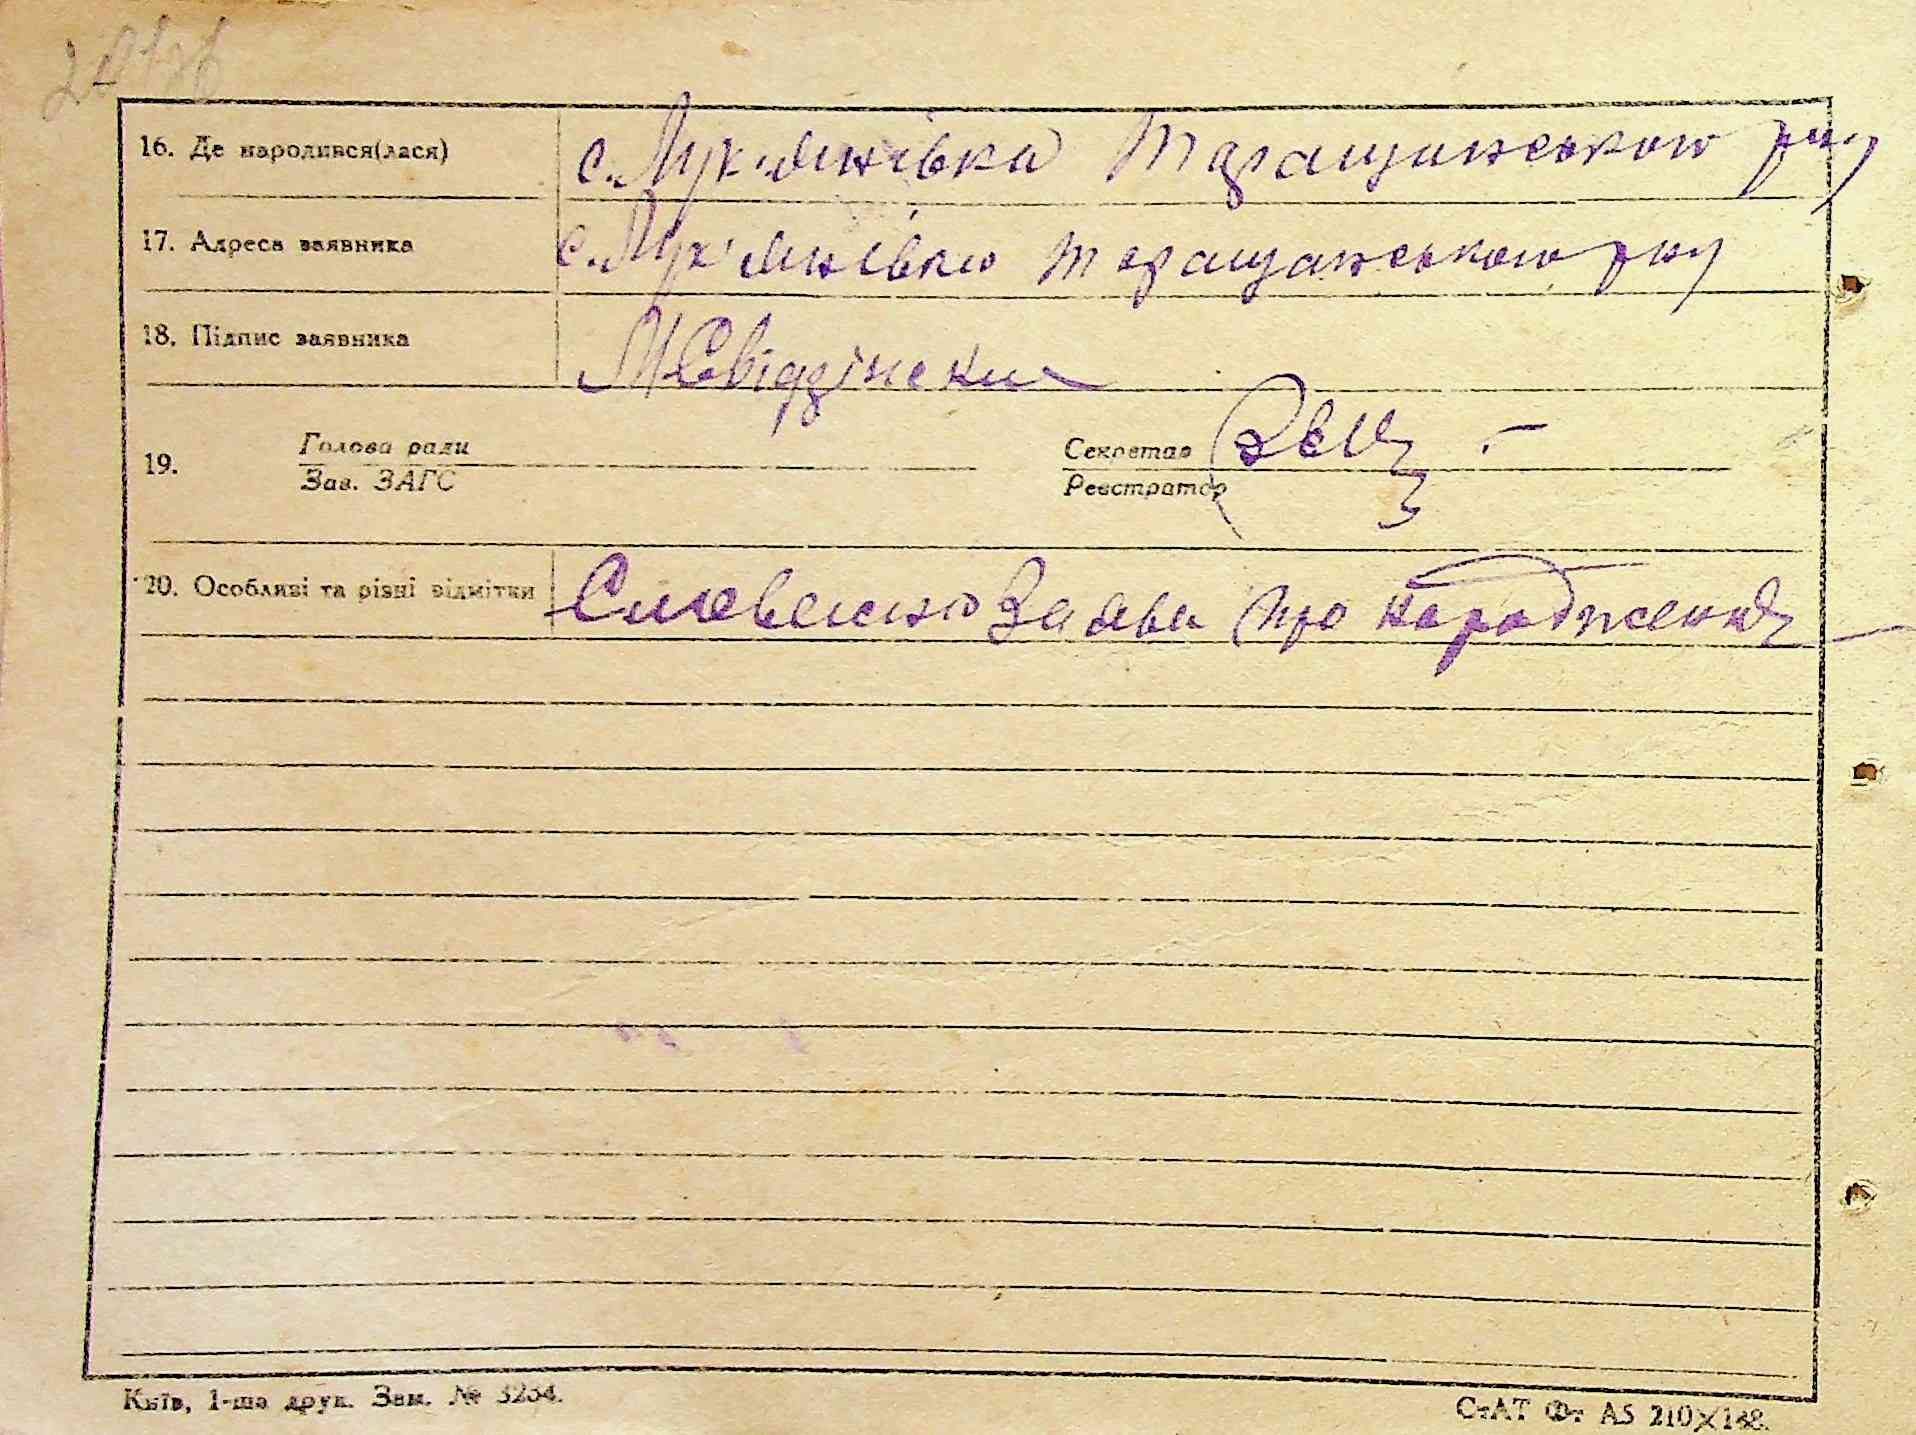 16. Де народився(лася) с. Лук'янівка Таращанського р-ну
17. Адреса заявника с. Лук'янівка Таращанського р-ну
18. Підпис заявника М Свідзінски
19. Голова ради Секретар
Зав. ЗАГС Реєстратор
20. Особливі та різні відмітки Словесно Заява про народження
Київ, 1-ша друк. Зам. № 3254.
СтАТ Фт А5 210×148.